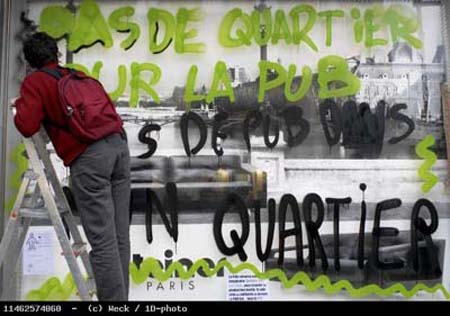 PAS DE QUARTIER
POUR LA PUB
PAS DE PUB DANS
MON QUARTIER
PARIS
11462574060 - (c) Meck / 1D-photo